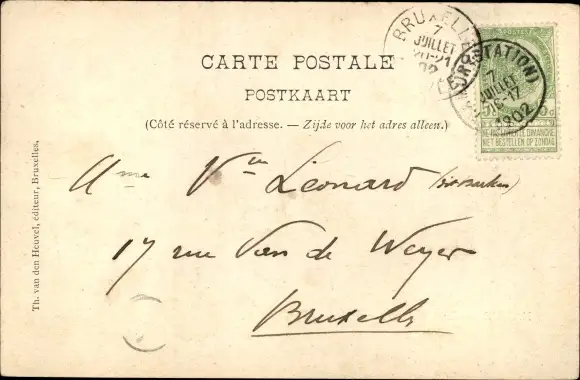 CARTE POSTALE
POSTKAART
(Côté réservé à l'adresse. — Zijde voor het adres alleen.)
BRUXELLES
7
JUILLET
20-21
02
(STATION)
7
JUILLET
16-17
1902
POSTES
NE PAS LIVRER LE DIMANCHE
NIET BESTELLEN OP ZONDAG
A Mme Vve Léonard
17 rue Van de Weyer
Bruxelles
Th. van den Heuvel, éditeur, Bruxelles,